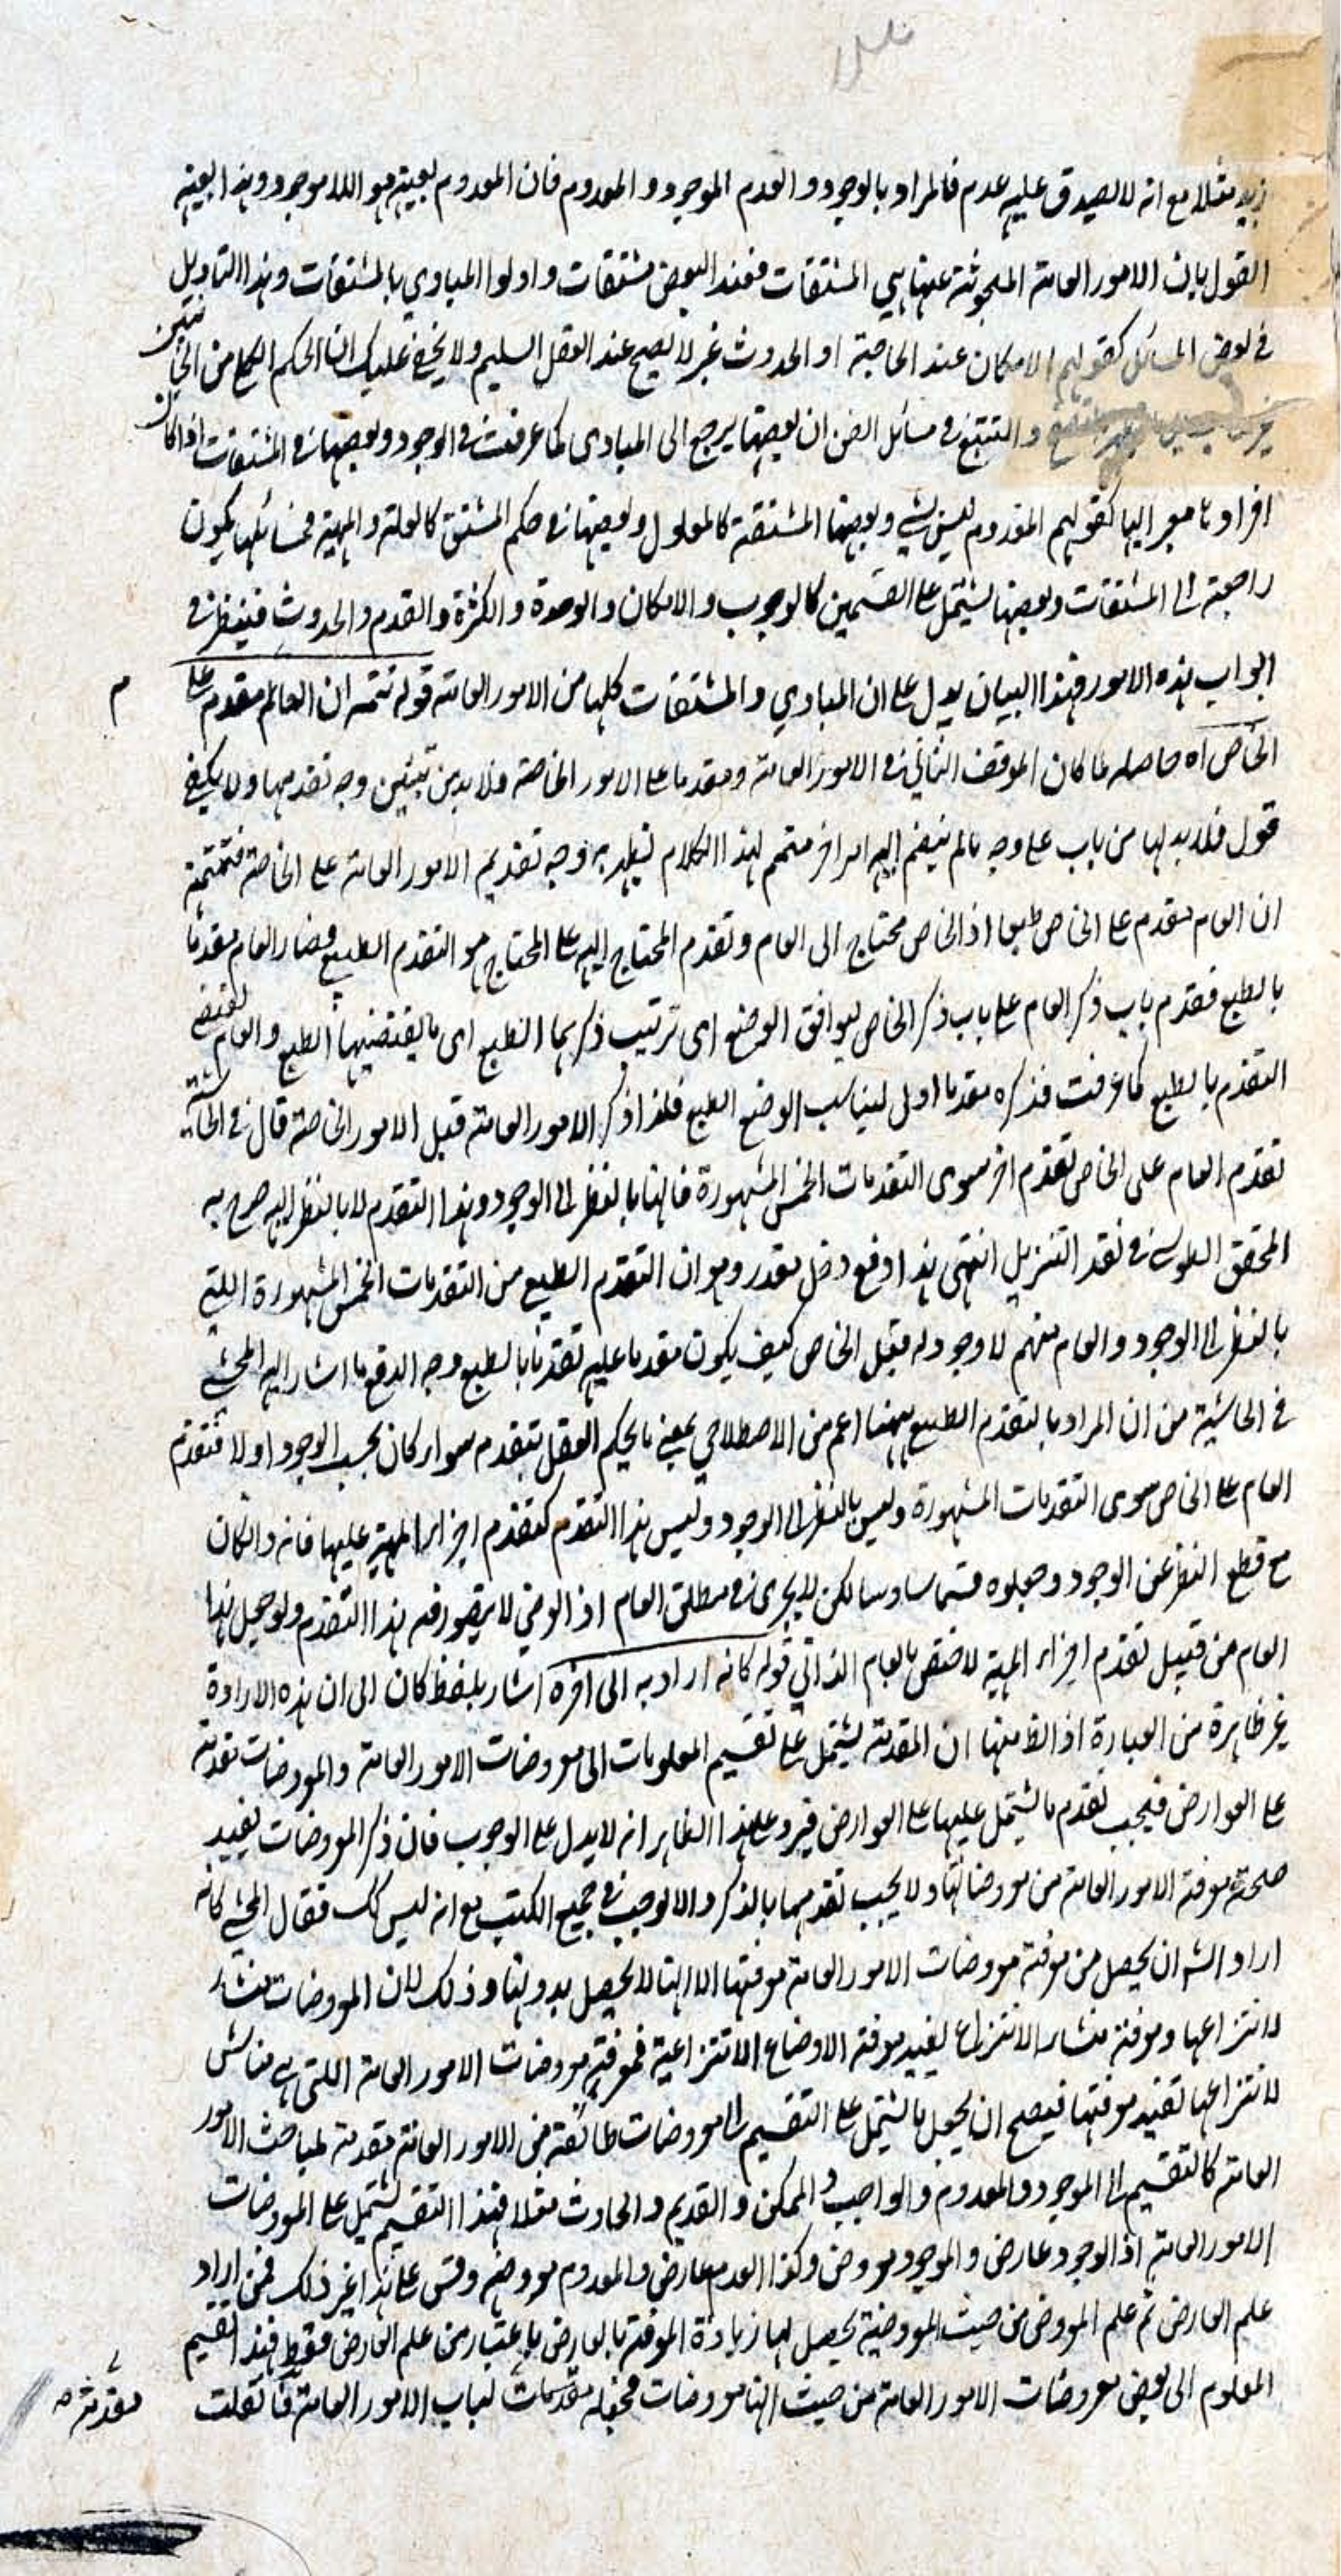 زيد مثلا مع انه لا يصدق عليه عدم فالمراد بالوجود والعدم الموجود والمعدوم فان المعدوم بعينه هو اللاموجود وهذا بعينه
القول بان الامور العامة المبحوثة عنها هي المشتقات فعند البعض مشتقات واولوا المبادي بالمشتقات وهذا التاويل
في بعض المسائل كقولهم الامكان عند الحاجة او الحدوث غير لا يصح عند العقل السليم ولا يخفى عليك ان الحكم الكلي من الجانبين
غير والتتبع في مسائل الفن ان بعضها يرجع الى المبادي كما عرفت في الوجود وبعضها في المشتقات اذا كان
افراد ما معبر اليها كقولهم المعدوم ليس بشي وبعضها المشتقة كالمعلول وبعضها في حكم المشتق كالعلة والمهية فمسائلها يكون
راجعة الى المشتقات وبعضها يشتمل على القسمين كالوجوب والامكان والوحدة والكثرة والقدم والحدوث فينظر في
ابواب هذه الامور فهذا البيان يدل على ان المبادي والمشتقات كلها من الامور العامة قوله تتمه ان العام مقدم على
م
الخاص اه حاصله لما كان الموقف الثاني في الامور العامة ومقدما على الامور الخاصة فلا بد من تبيين وجه تقدمها ولا يكفي
قول فلا بد لها من باب على وجه مالم ينضم اليه امر اخر متمم لهذا الكلام ليظهر به وجه تقديم الامور العامة على الخاصة فتتمته
ان العام مقدم على الخاص طبعا اذ الخاص محتاج الى العام وتقدم المحتاج اليه على المحتاج هو التقدم الطبيعي فصار العام مقدما
بالطبع فقدم باب ذكر العام على باب ذكر الخاص ليوافق الوضع اى ترتيب ذكرهما الطبع اى ما يقتضيها الطبع والعام يقتضي
التقدم بالطبع كما عرفت فذكره مقدما اولى ليناسب الوضع الطبع فلهذا ذكر الامور العامة قبل الامور الخاصة قال في الحاشية
تقدم العام على الخاص تقدم اخر سوى التقدمات الخمس المشهورة فانها بالنظر الى الوجود وهذا التقدم لا بالنظر اليه صرح به
المحقق الطوسي في نقد التنزيل انتهى هذا دفع دخل مقدر وهو ان التقدم الطبيعي من التقدمات الخمس المشهورة اللتي
بالنظر الى الوجود والعام منهم لا وجود له قبل الخاص كيف يكون مقدما عليه تقدما بالطبع وجه الدفع ما اشار اليه المحشي
في الحاشية من ان المراد بالتقدم الطبيعي ههنا اعم من الاصطلاحي يعني ما يحكم العقل بتقدم سواء كان بحسب الوجود اولا فتقدم
العام على الخاص سوى التقدمات المشهورة وليس بالنظر الى الوجود وليس هذا التقدم كتقدم اجزاء المهية عليها فانه وان كان
مع قطع النظر عن الوجود وجعلوه قسما سادسا لكن لا يجرى في مطلق العام اذ العرضي لا يتصور فيه هذا التقدم ولو جعل هذا
العام من قبيل تقدم اجزاء المهية لاختص بالعام الذاتي قوله كانه اراد به الى اخره اشار بلفظ كان الى ان هذه الارادة
غير ظاهرة من العبارة اذ الظ منها ان المقدمة يشتمل على تقسيم المعلومات الى معروضات الامور العامة والمعروضات مقدمة
على العوارض فيجب تقدم ما يشتمل عليها على العوارض فيرد على هذا الظاهر انه لا يدل على الوجوب فان ذكر المعروضات يفيد
صلحة معرفة الامور العامة من معروضاتها ولا يجب تقدمها بالذكر والا لوجب في جميع الكتب مع انه ليس كك فقال المحشي كانه
اراد الشه ان يحصل من معرفة معروضات الامور العامة معرفتها الا انها لا يحصل بدونها وذلك لان المعروضات منشاء
لانتزاعها ومعرفة منشاء الانتزاع يفيد معرفة الاوضاع الانتزاعية فمعرفة معروضات الامور العامة اللتي هي مناشي
لانتزاعها تفيد معرفتها فيصح ان يجعل ما يشتمل على التقسيم الى معروضات طائفة من الامور العامة مقدمة لمباحث الامور
العامة كالتقسيم الى الموجود والمعدوم والواجب والممكن والقديم والحادث مثلا فهذا التقسيم يشتمل على المعروضات
الامور العامة اذ الوجود عارض والموجود معروض وكذا العدم عارض والمعدوم معروضه وقس على هذا غير ذلك فمن اراد
علم العارض ثم علم المعروض من حيث المعروضية يحصل لها زيادة المعرفة بالعارض باعتبار من علم العارض فقط فهذا تقسيم
المعلوم الى بعض معروضات الامور العامة من حيث انها معروضات فجعله مقدمات لباب الامور العامة فان قلت
مقدمة صه